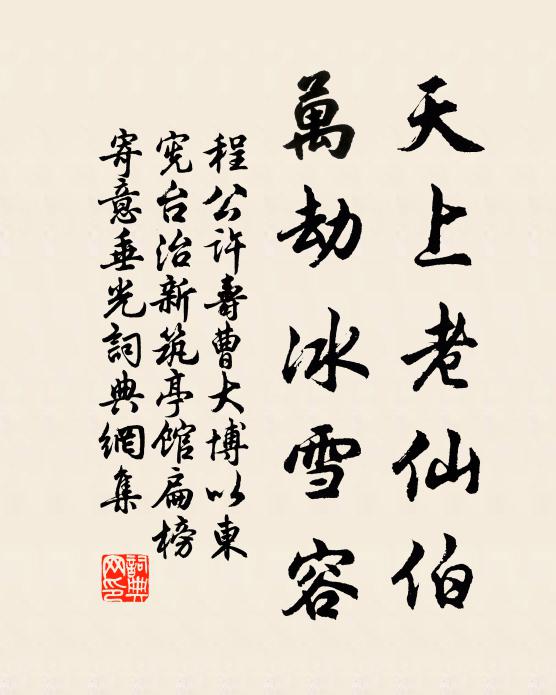 天上老仙伯
萬劫冰雪容
程公許壽曹大博以東
宪台治新筑亭馆扁榜
寄意垂光詞典網集
詞典网印